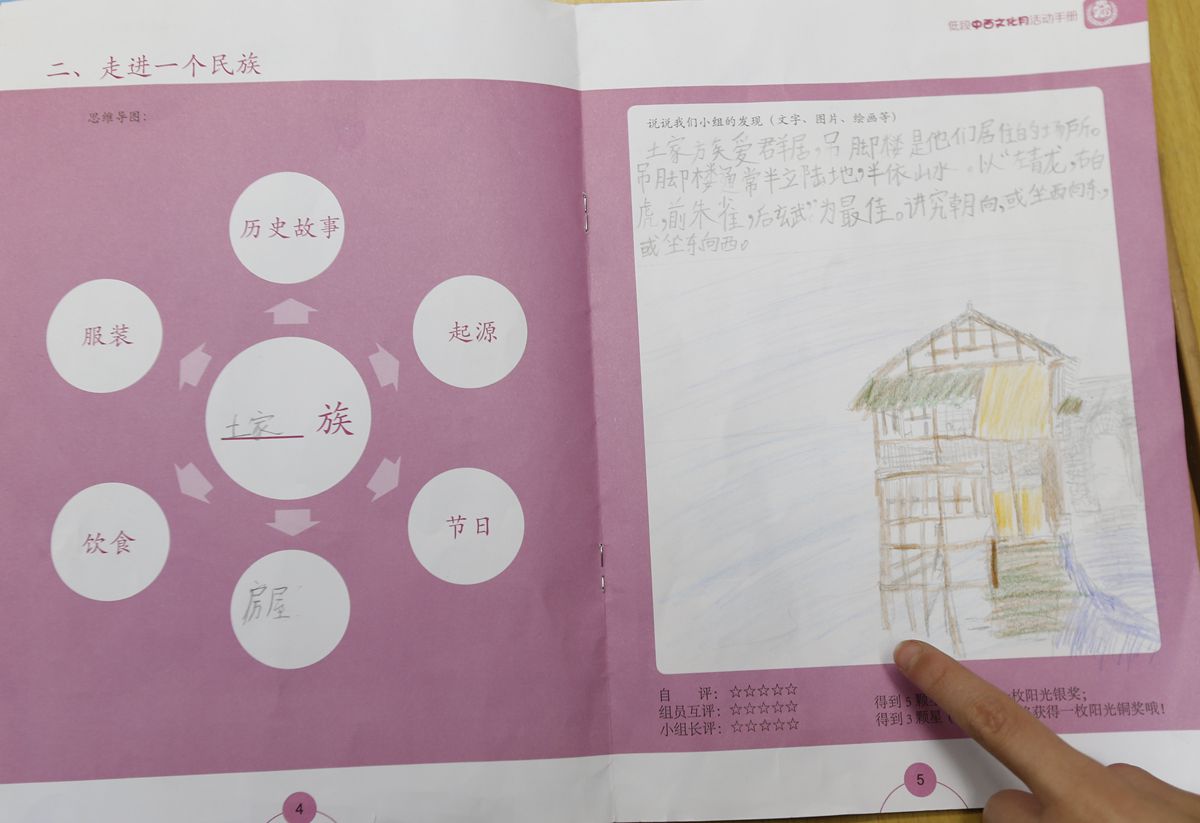 二、走进一个民族
思维导图：
历史故事
服装
起源
土家 族
饮食
节日
房屋
4
低段中西文化月活动手册
说说我们小组的发现（文字、图片、绘画等）
土家族爱群居，吊脚楼是他们居住的场所。
吊脚楼通常半立陆地，半依山水。以“左青龙，右白
虎，前朱雀，后玄武”为最佳。讲究朝向，或坐西向东，
或坐东向西。
自 评：☆☆☆☆☆
组员互评：☆☆☆☆☆
小组长评：☆☆☆☆☆
得到5颗 一枚阳光银奖；
得到3颗星 获得一枚阳光铜奖哦！
5